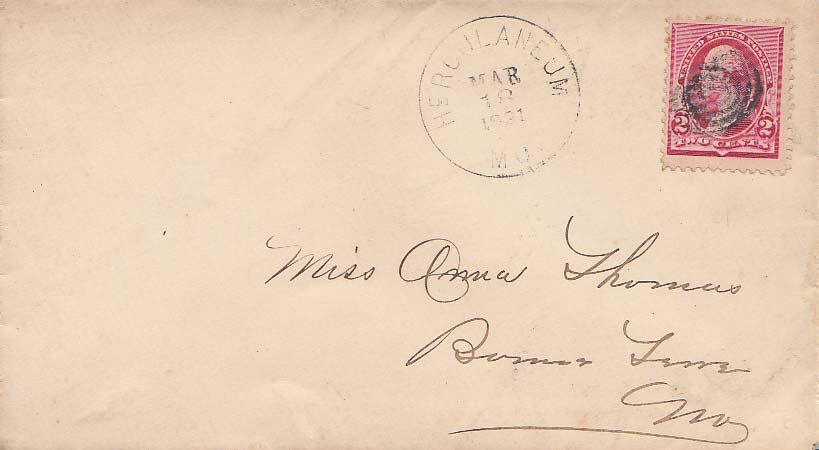 HERCULANEUM
MAR
18
1891
MO
UNITED STATES POSTAGE
2 2
TWO CENTS
Miss Oma Thomas
Bonne Terre
Mo